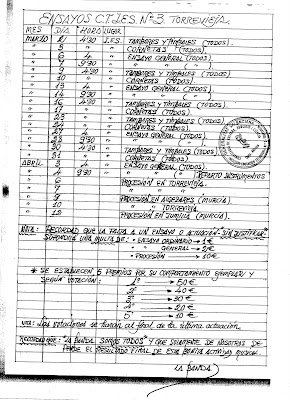 ENSAYOS C.T. I.ES. Nº 3. TORREVIEJA.
MES DIA HORA LUGAR
MARZO 2 4'30 I.ES. TAMBORES Y TIMBALES (TODOS).
" 3 4 " CORNETAS (TODOS).
" 4 " ENSAYO GENERAL (TODOS).
" 9'30 " " " (TODOS).
" 9 4'30 " TAMBORES Y TIMBALES (TODOS).
" 10 " CORNETAS (TODOS).
" 13 4 " ENSAYO GENERAL (TODOS).
" 9'30 " " " (TODOS).
" 16 4'30 " TAMBORES Y TIMBALES (TODOS).
" " CORNETAS (TODOS).
" 23 " TAMBORES Y TIMBALES (TODOS).
" " CORNETAS (TODOS).
" 27 4 " ENSAYO GENERAL (TODOS).
" 9'30 " " " (TODOS).
" 30 4'30 " TAMBORES Y TIMBALES (TODOS).
" 31 " CORNETAS (TODOS).
ABRIL 3 4 " ENSAYO GENERAL (TODOS).
" 4 9'30 " " " REPARTO INSTRUMENTOS
" PROCESIÓN EN TORREVIEJA.
" " " "
" 9 PROCESIÓN EN ALGEZARES (MURCIA).
" 10 " " TORREVIEJA.
" 12 PROCESIÓN EN JUMILLA (MURCIA).
NOTA: RECORDAD QUE LA FALTA A UN ENSAYO O ACTUACIÓN "SIN JUSTIFICAR"
SUPONDRÁ UNA MULTA DE: • ENSAYO ORDINARIO → 1€
" GENERAL → 2€
• PROCESIÓN → 10€
* SE ESTABLECEN 5 PREMIOS POR SU COMPORTAMIENTO EJEMPLAR Y
SEGÚN VOTACIÓN:
1º → 50€
2º → 40€
3º → 30€
4º → 20€
5º → 10€
Las votaciones se harán al final de la última actuación.
RECORDAD QUE: "LA BANDA SOMOS TODOS" Y QUE SOLAMENTE DE NOSOTROS DE-
PENDE EL RESULTADO FINAL DE ESTA BONITA ACTIVIDAD MUSICAL
LA BANDA